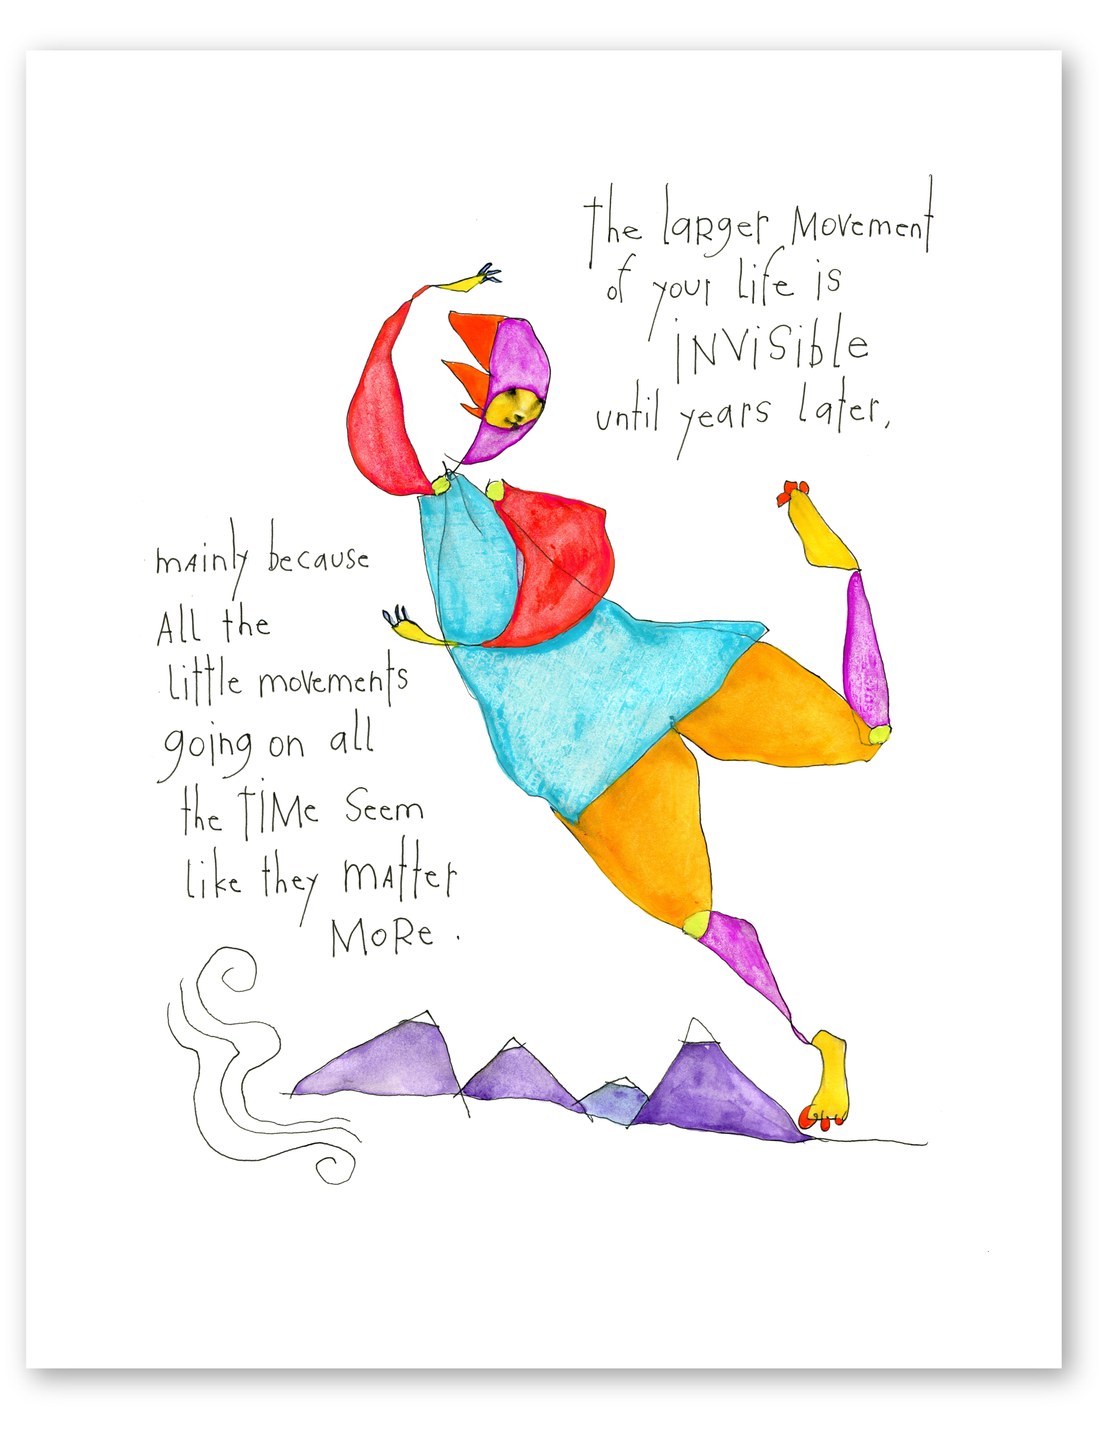 the larger Movement
of your life is
iNViSible
until years later,
mainly because
All the
little movements
going on all
the TiMe Seem
like they matter
MoRe.